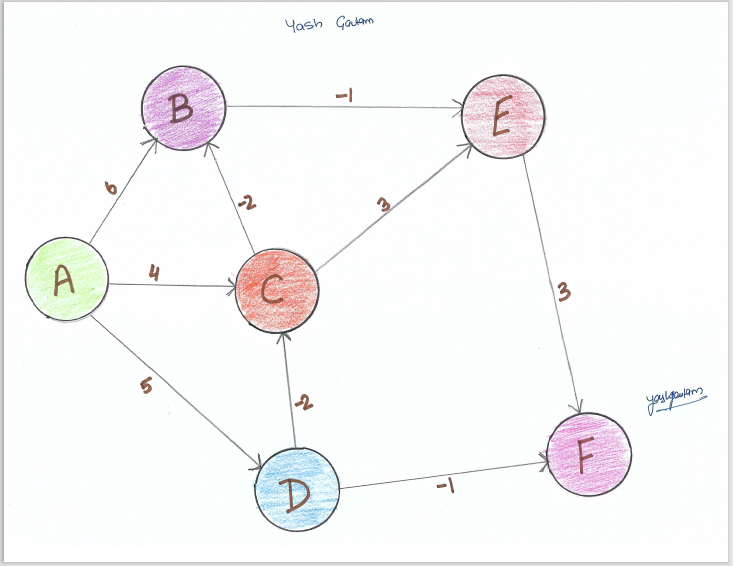 Yash Gautam
B
-1
E
6
-2
3
A
4
C
3
5
-2
yashgautam
F
D
-1